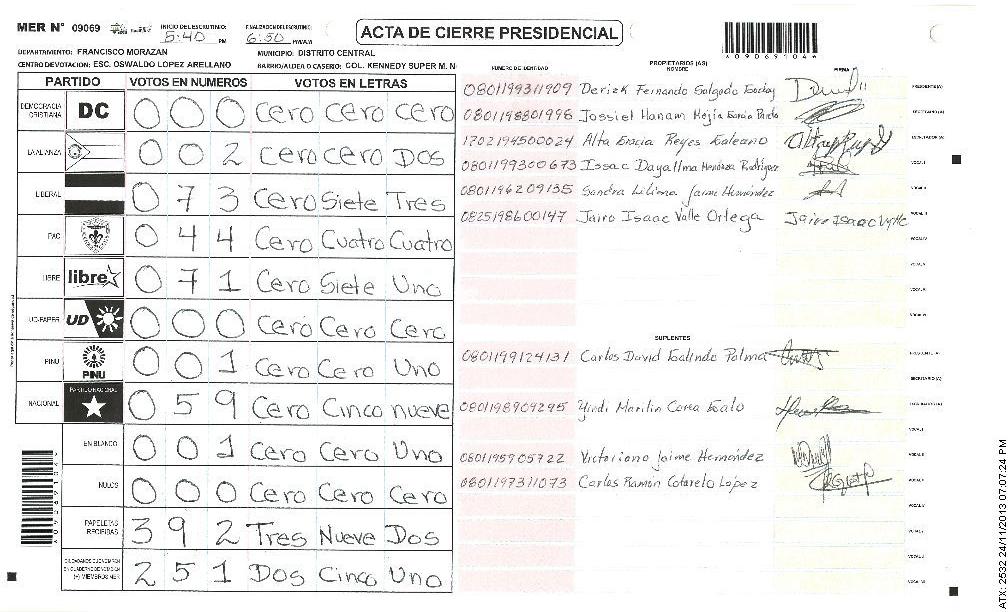 MER N° 09069 INICIO DEL ESCRUTINIO: 5:40 PM FINALIZACION DEL ESCRUTINIO: 6:50 PM/AM/A ACTA DE CIERRE PRESIDENCIAL
DEPARTAMENTO: FRANCISCO MORAZAN MUNICIPIO: DISTRITO CENTRAL
CENTRO DE VOTACION: ESC. OSWALDO LOPEZ ARELLANO BARRIO/ALDEA O CASERIO: COL. KENNEDY SUPER M. N
PARTIDO VOTOS EN NUMEROS VOTOS EN LETRAS
DEMOCRACIA CRISTIANA DC 0 0 0 Cero Cero Cero
LA ALIANZA 0 0 2 Cero Cero Dos
LIBERAL 0 7 3 Cero Siete Tres
PAC 0 4 4 Cero Cuatro Cuatro
LIBRE libre 0 7 1 Cero Siete Uno
UD-FAPER UD 0 0 0 Cero Cero Cero
PINU PINU 0 0 1 Cero Cero Uno
NACIONAL PARTIDO NACIONAL 0 5 9 Cero Cinco nueve
EN BLANCO 0 0 1 Cero Cero Uno
NULOS 0 0 0 Cero Cero Cero
PAPELETAS RECIBIDAS 3 9 2 Tres Nueve Dos
(+) MIEMBROS MER 2 5 1 Dos Cinco Uno
*09069104*
NUMERO DE IDENTIDAD PROPIETARIOS (AS) NOMBRE FIRMA
0801199311909 Derick Fernando Salgado PRESIDENTE(A)
0801198801996 Jossiel Hanam Mejia Garcia SECRETARIO (A)
1702194500024 Alta Gracia Reyes Galeano ESCRUTADOR (A)
0801199300673 Issac Dayallma Mendoza Rodriguez VOCAL I
0801196209135 Sandra Liliana Jaime Hernández VOCAL II
0825198600147 Jairo Isaac Valle Ortega Jairo Isaac Valle VOCAL III
VOCAL IV
VOCAL V
SUPLENTES
0801199124131 Carlos David Galindo Palma PRESIDENTE (A)
SECRETARIO (A)
0801198909295 Yindi Marilin Cerea Gato ESCRUTADOR (A)
VOCAL I
0801195905722 Victoriano Jaime Hernández VOCAL II
0801197311073 Carlos Ramón Cotarelo Lopez
ATX: 2532 24/11/2013 07:07:24 PM